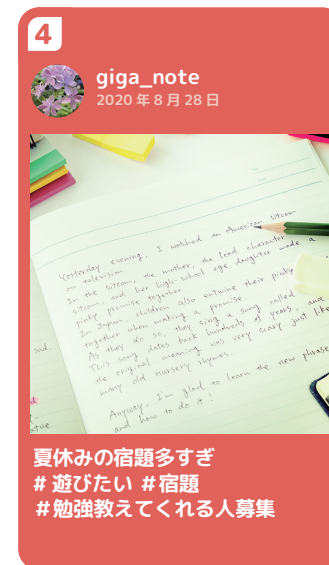 4
giga_note
2020年8月28日
Yesterday evening, I watched an American sitcom
on television.
In the sitcom, the mother, the lead character
sitcom, and her high-school age daughter made a
pinky promise together.
In Japan, children also entwine their pinky
together when making a promise.
As they do so, they sing a song called
This song dates back hundreds of years, and
the original meaning was very scary just like
many old nursery rhymes.
Anyway, I'm glad to learn the new phrase
and how to do it!
sad.
夏休みの宿題多すぎ
# 遊びたい #宿題
#勉強教えてくれる人募集